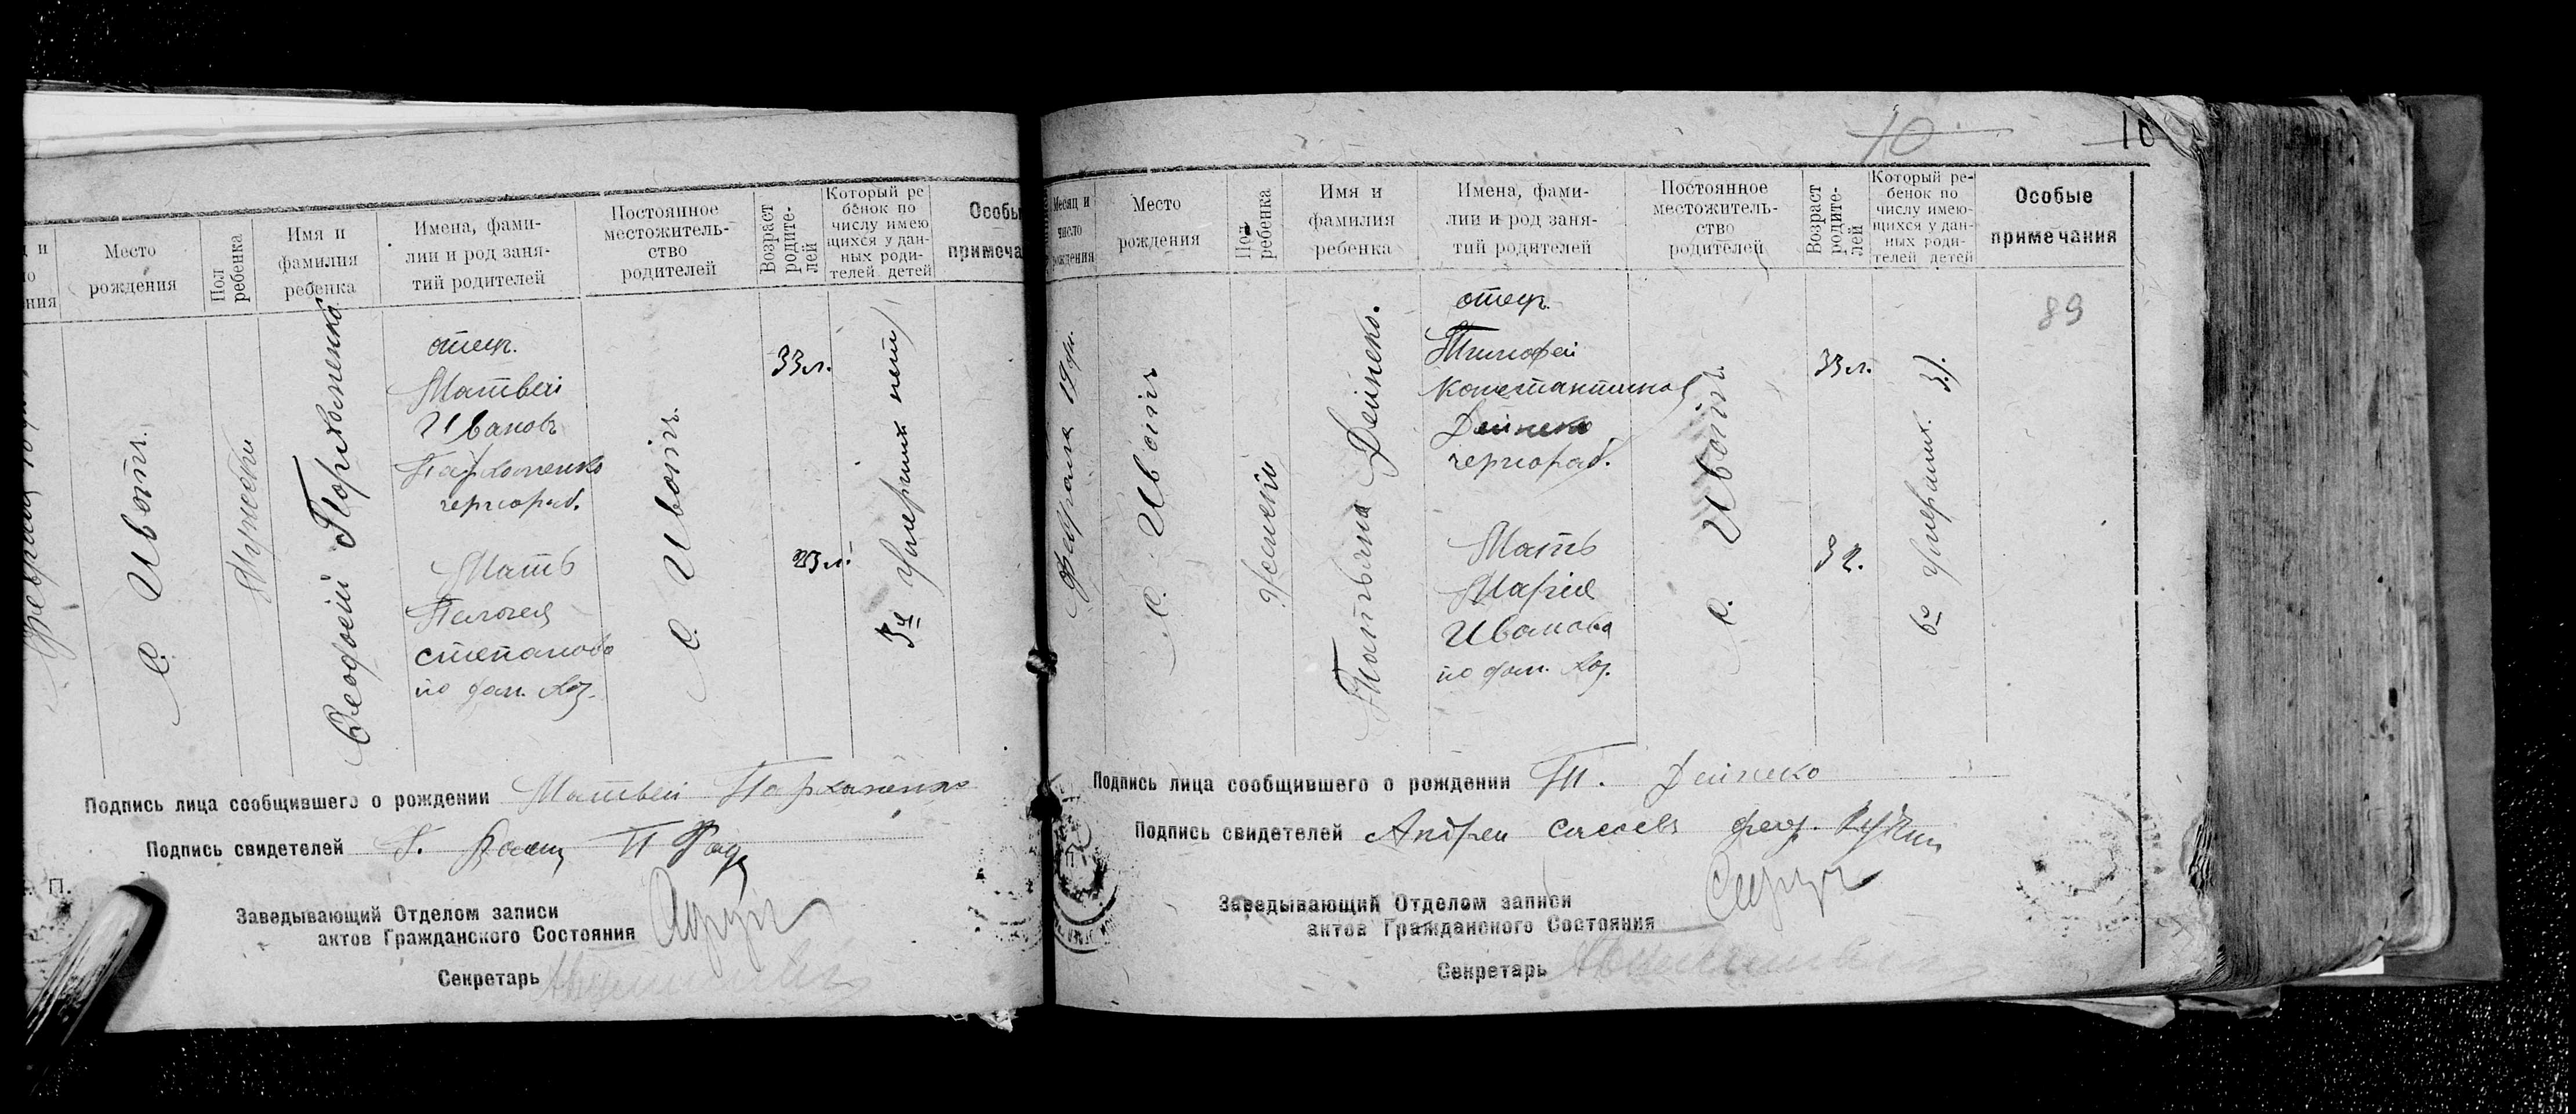 Место рождения
Пол ребенка
Имя и фамилия ребенка
Имена, фами-
лии и род заня-
тий родителей
Постоянное
местожитель-
ство
родителей
Возраст родите-лей
Который ре
бенок по
числу имею
щихся у дан-
ных роди-
телей детей
Особы
примеча
С. Ивотъ.
Мужески
Феофеи Пархоменко
отец.
Матвеи
Ивановъ
Пархоменко
чернораб.
Мать
Пелогея
степанова
по фам. хоз.
С. Ивотъ
33 л.
23 л.
3й умерших нет
Подпись лица сообщившего о рождении Матвеи Пархоменко
Подпись свидетелей
П.
Заведывающий Отделом записи
актов Гражданского Состояния
Секретарь
10
10
Месяц и
число
рождения
Место
рождения
Пол ребенка
Имя и
фамилия
ребенка
Имена, фами-
лии и род заня-
тий родителей
Постоянное
местожитель-
ство
родителей
Возраст родите-лей
Который ре-
бенок по
числу имею-
щихся у дан-
ных роди-
телей детей
Особые
примечания
89
Февраля 19 дн.
С. Ивотъ
Женски
Татьяна Дейнеко.
отец.
Тимофей
Константинов
Дейнеко
чернораб.
Мать
Мария
Иванова
по фам. хоз.
С. Ивотъ.
33 л.
32.
6й умерших. 3).
Подпись лица сообщившего о рождении Т. Дейнеко
Подпись свидетелей Андреи
Заведывающий Отделом записи
актов Гражданского Состояния
Секретарь